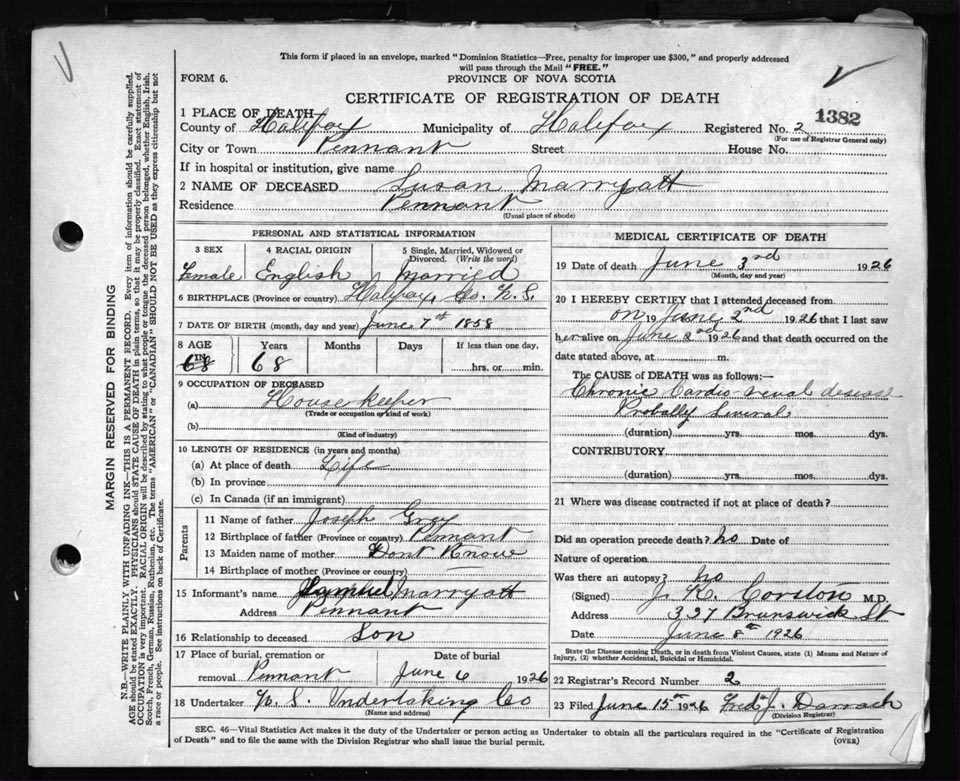 This form if placed in an envelope, marked "Dominion Statistics—Free, penalty for improper use $300," and properly addressed
will pass through the Mail "FREE."
FORM 6.
PROVINCE OF NOVA SCOTIA
CERTIFICATE OF REGISTRATION OF DEATH
1382
1 PLACE OF DEATH
County of Halifax Municipality of Halifax Registered No. 2
(For use of Registrar General only)
City or Town Pennant Street House No.
If in hospital or institution, give name
2 NAME OF DECEASED Susan Marryatt
Residence Pennant
(Usual place of abode)
PERSONAL AND STATISTICAL INFORMATION
3 SEX 4 RACIAL ORIGIN 5 Single, Married, Widowed or
Divorced. (Write the word)
Female English Married
6 BIRTHPLACE (Province or country) Halifax, Co. N.S.
7 DATE OF BIRTH (month, day and year) June 7th 1858
8 AGE Years Months Days If less than one day,
IN
68 68 hrs. or min.
9 OCCUPATION OF DECEASED
(a) House keeper
(Trade or occupation or kind of work)
(b)
(Kind of industry)
10 LENGTH OF RESIDENCE (in years and months)
(a) At place of death Life
(b) In province
(c) In Canada (if an immigrant)
Parents
11 Name of father Joseph Grey
12 Birthplace of father (Province or country) Pennant
13 Maiden name of mother Dont Know
14 Birthplace of mother (Province or country) —
15 Informant's name Samuel Marryatt
Address Pennant
16 Relationship to deceased Son
17 Place of burial, cremation or Date of burial
removal Pennant June 6 1926
18 Undertaker N.S. Undertaking Co
(Name and address)
MEDICAL CERTIFICATE OF DEATH
19 Date of death June 3rd 1926
(Month, day and year)
20 I HEREBY CERTIFY that I attended deceased from
on 19 June 2nd 1926 that I last saw
her alive on June 2nd 1926 and that death occurred on the
date stated above, at m.
The CAUSE of DEATH was as follows:—
Chronic Cardio renal
Probally Several
(duration) yrs. mos. dys.
CONTRIBUTORY
(duration) yrs. mos. dys.
21 Where was disease contracted if not at place of death?
Did an operation precede death? no Date of
Nature of operation
Was there an autopsy? no
(Signed) J. K. Corston M.D.
Address 327 Brunswick St
Date June 8th 1926
State the Disease causing Death, or in death from Violent Causes, state (1) Means and Nature of
Injury, (2) whether Accidental, Suicidal or Homicidal.
22 Registrar's Record Number 2
23 Filed June 15th 1926 Fred J. Darrach
(Division Registrar)
SEC. 46—Vital Statistics Act makes it the duty of the Undertaker or person acting as Undertaker to obtain all the particulars required in the "Certificate of Registration
of Death" and to file the same with the Division Registrar who shall issue the burial permit.
(OVER)
MARGIN RESERVED FOR BINDING
N.B.—WRITE PLAINLY WITH UNFADING INK—THIS IS A PERMANENT RECORD. Every item of information should be carefully supplied.
AGE should be stated EXACTLY. PHYSICIANS should STATE CAUSE OF DEATH in plain terms, so that it may be properly classified. Exact statement of
OCCUPATION is very important. RACIAL ORIGIN will be described by stating to what people or tongue the deceased person belonged, whether English, Irish,
Scotch, French, German, Russian, Ruthenian, etc. The terms "AMERICAN" or "CANADIAN" SHOULD NOT BE USED as they express citizenship but not
a race or people. See instructions on back of Certificate.